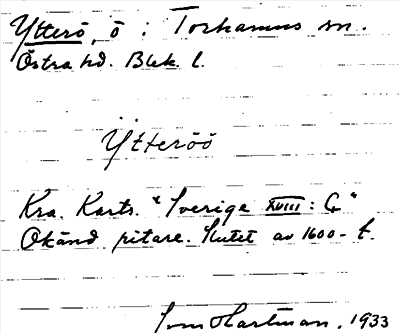 Ytterö, ö i Torhamns sn.
Östra hd. Blek. l.
Ytteröö
Kra. Karts. "Sverige XVIII: G"
Okänd ritare. Slutet av 1600-t.
Hartman, 1933